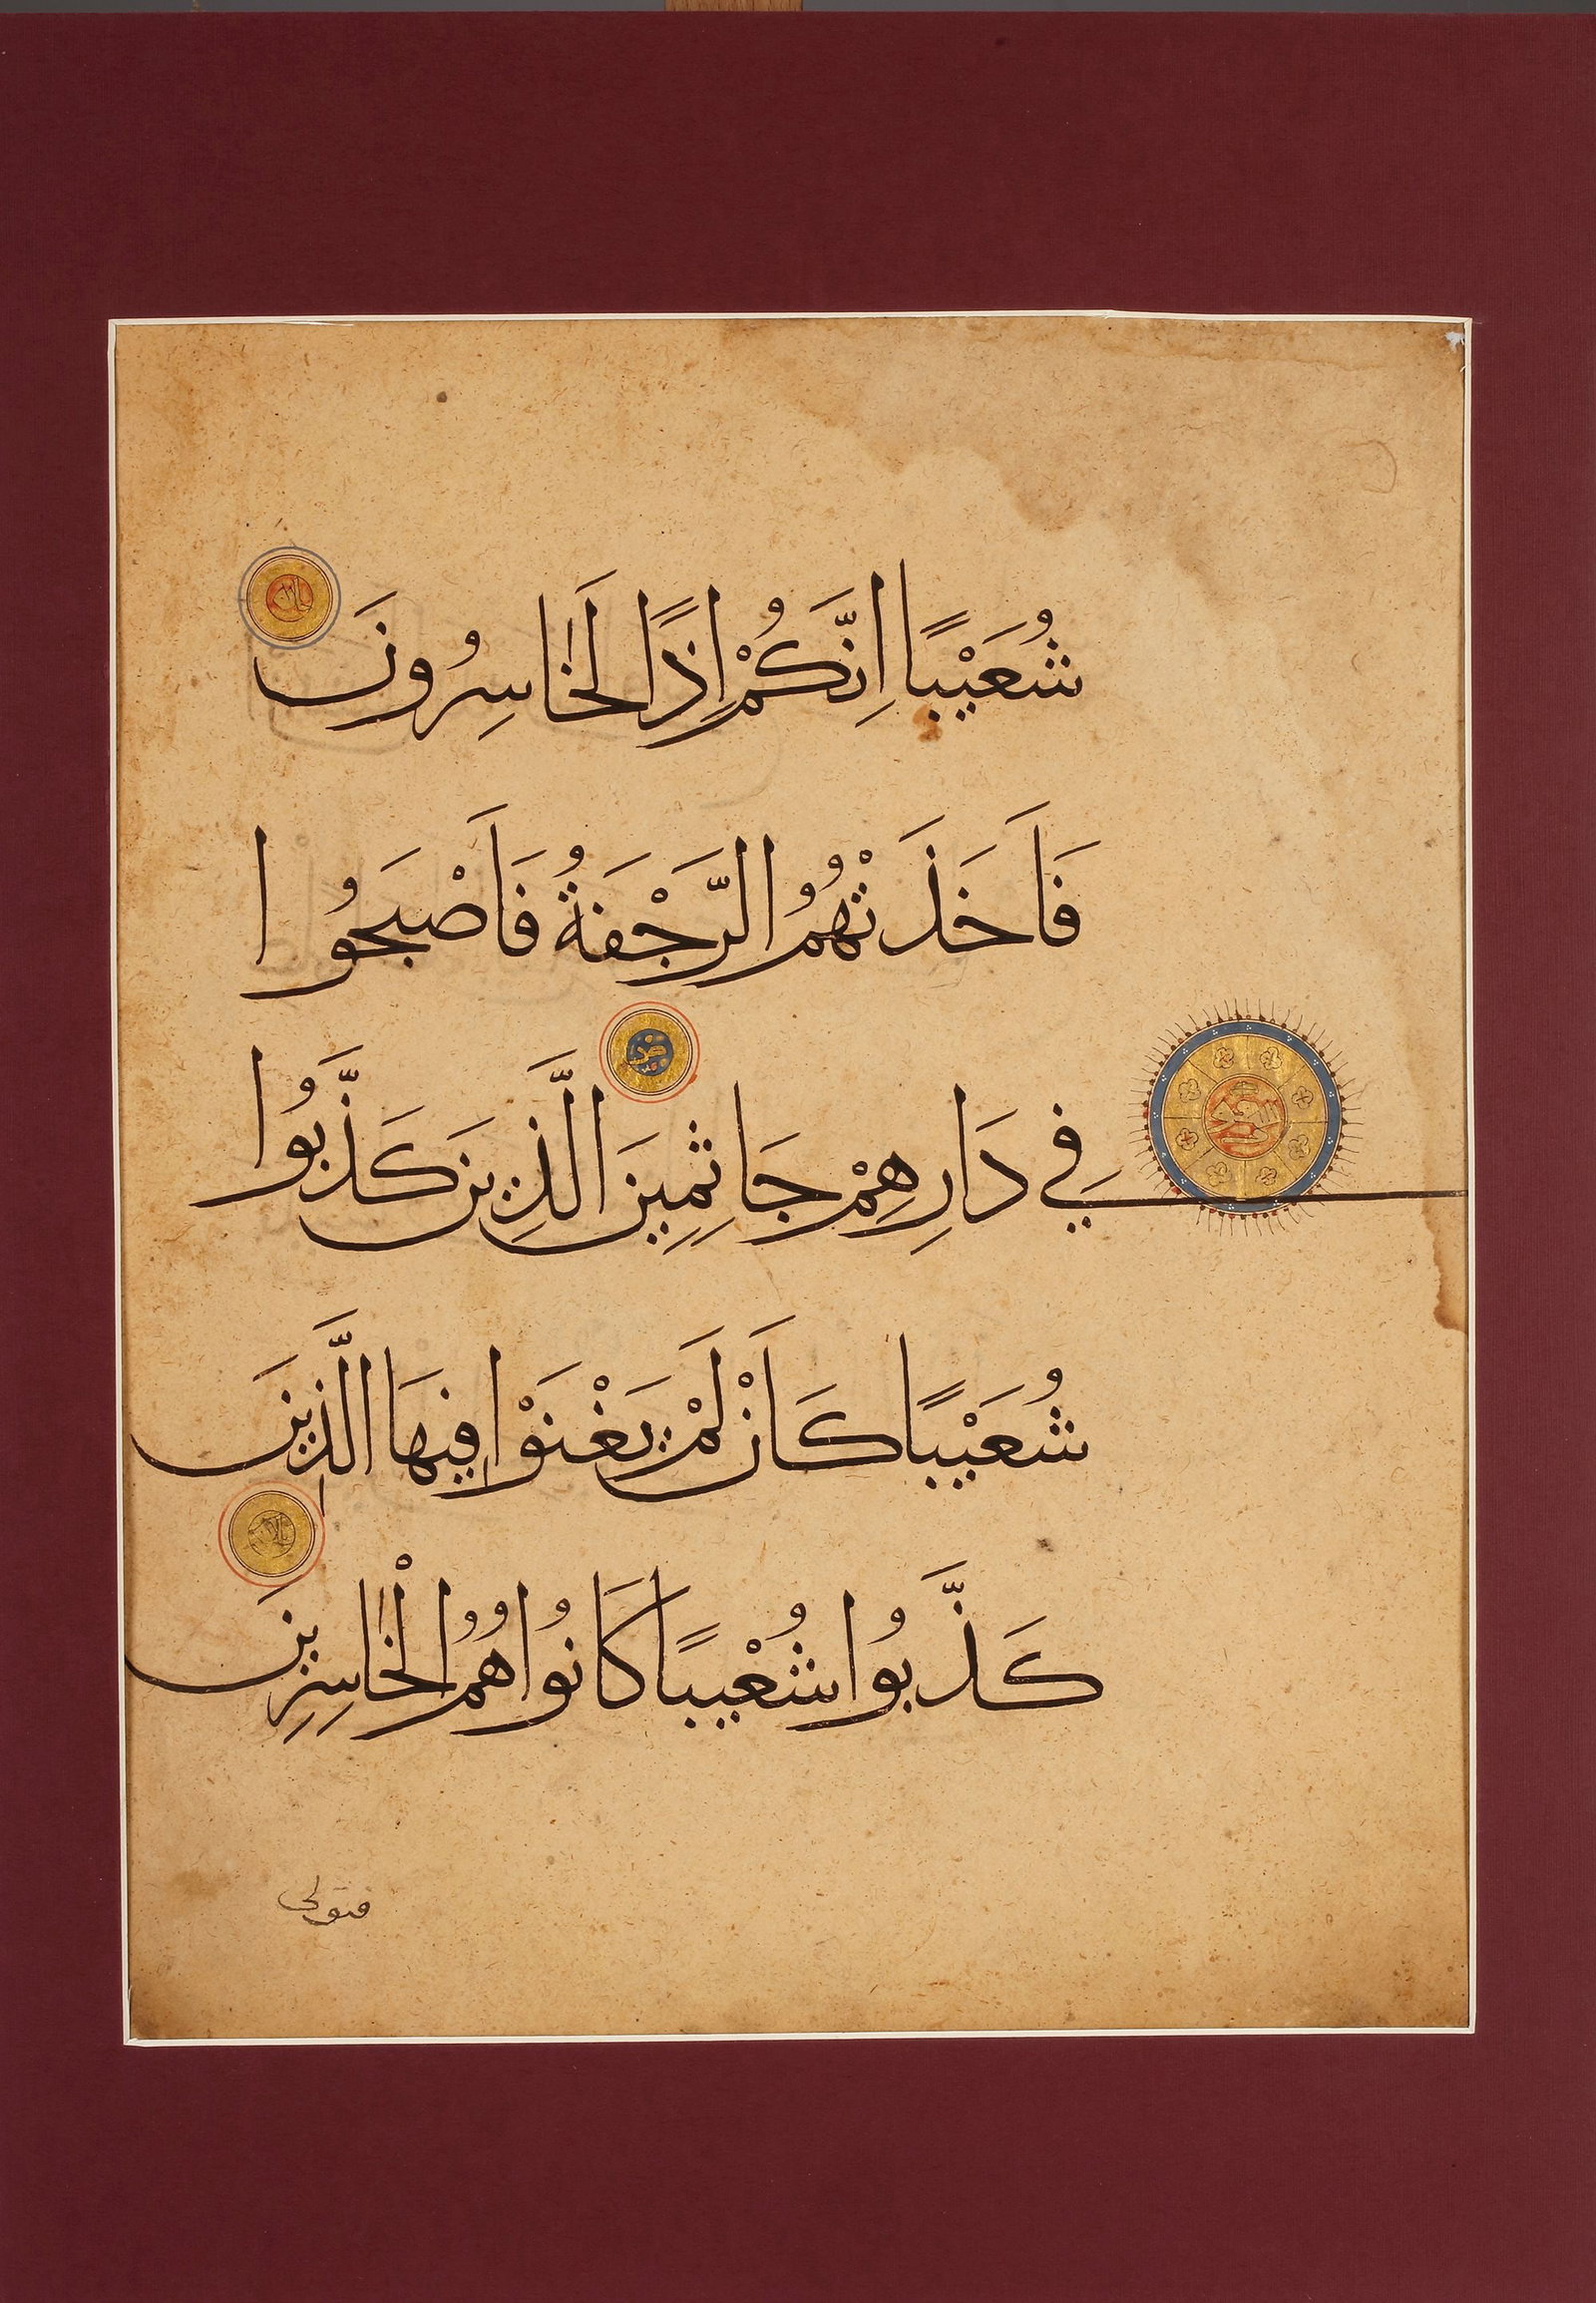 شُعَيْبًا اِنَّكُمْ اِذًا لَخَاسِرُونَ
فَاَخَذَتْهُمُ الرَّجْفَةُ فَاَصْبَحُوا
فِي دَارِهِمْ جَاثِمِينَ الَّذِينَ كَذَّبُوا
شُعَيْبًا كَاَنْ لَمْ يَغْنَوْا فِيهَا الَّذِينَ
كَذَّبُوا شُعَيْبًا كَانُوا هُمُ الْخَاسِرِينَ
فتولى